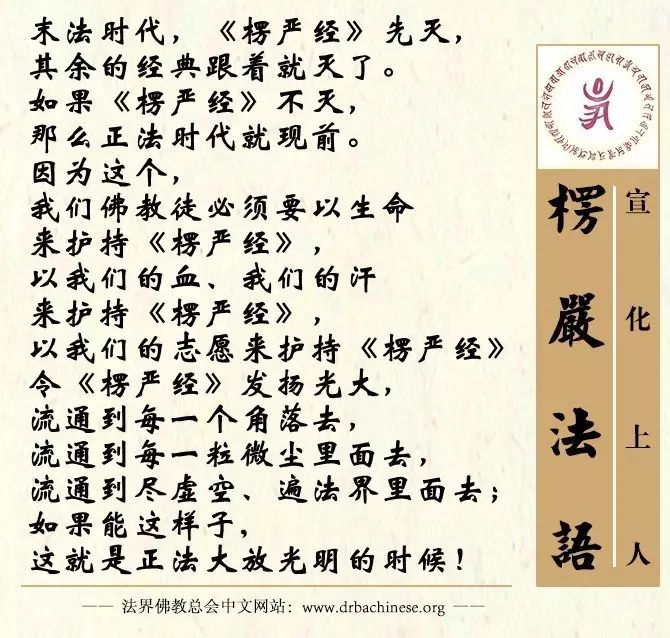 末法时代，《楞严经》先灭，
其余的经典跟着就灭了。
如果《楞严经》不灭，
那么正法时代就现前。
因为这个，
我们佛教徒必须要以生命
来护持《楞严经》，
以我们的血、我们的汗
来护持《楞严经》，
以我们的志愿来护持《楞严经》
令《楞严经》发扬光大，
流通到每一个角落去，
流通到每一粒微尘里面去，
流通到尽虚空、遍法界里面去；
如果能这样子，
这就是正法大放光明的时候！
—— 法界佛教总会中文网站：www.drbachinese.org ——
宣化上人
楞嚴法語